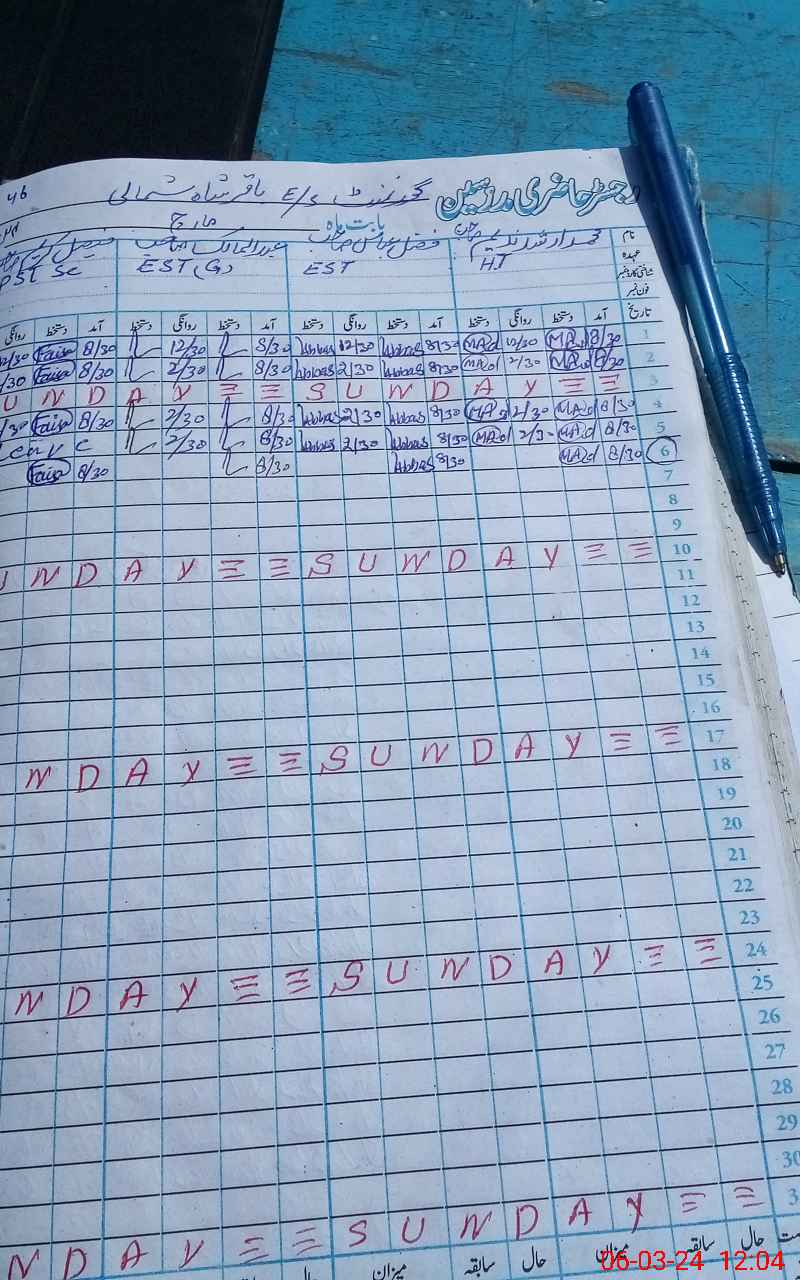 رجسٹر حاضری مدرسین گورنمنٹ E/S باقر شاہ شمالی 46
بابت ماہ مارچ
نام محمد ارشد ندیم صاحب فضل عباس صاحب عبدالمالک صاحب فیصل
عہدہ HT EST EST (G) PST Sc
شناختی کارڈ نمبر
فون نمبر
تاریخ آمد دستخط روانگی دستخط آمد دستخط روانگی دستخط آمد دستخط روانگی دستخط آمد دستخط روانگی
1 8/30 MAd 12/30 MAd 8/30 Abbas 12/30 Abbas 8/30 12/30 8/30 Faisal 12/30
2 8/30 MAd 2/30 MAd 8/30 Abbas 2/30 Abbas 8/30 2/30 8/30 Faisal /30
3 U N D A Y S U N D A Y
4 8/30 MAd 2/30 MAd 8/30 Abbas 2/30 Abbas 8/30 2/30 8/30 Faisal /30
5 8/30 MAd 2/30 MAd 8/30 Abbas 2/30 Abbas 8/30 2/30 eave
6 8/30 MAd 8/30 Abbas 8/30 8/30 Faisal
7
8
9
10 U N D A Y S U N D A Y
11
12
13
14
15
16
17 N D A Y S U N D A Y
18
19
20
21
22
23
24 N D A Y S U N D A Y
25
26
27
28
29
30
3 N D A Y S U N D A Y
حال سابقہ میزان حال سابقہ میزان حال
06-03-24 12.04